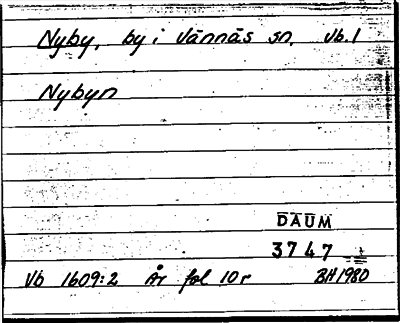 Nyby, by i Vännäs sn. Vb. 1
Nybyn
DAUM
3747
Vb 1609:2 År fol 10r BH 1980